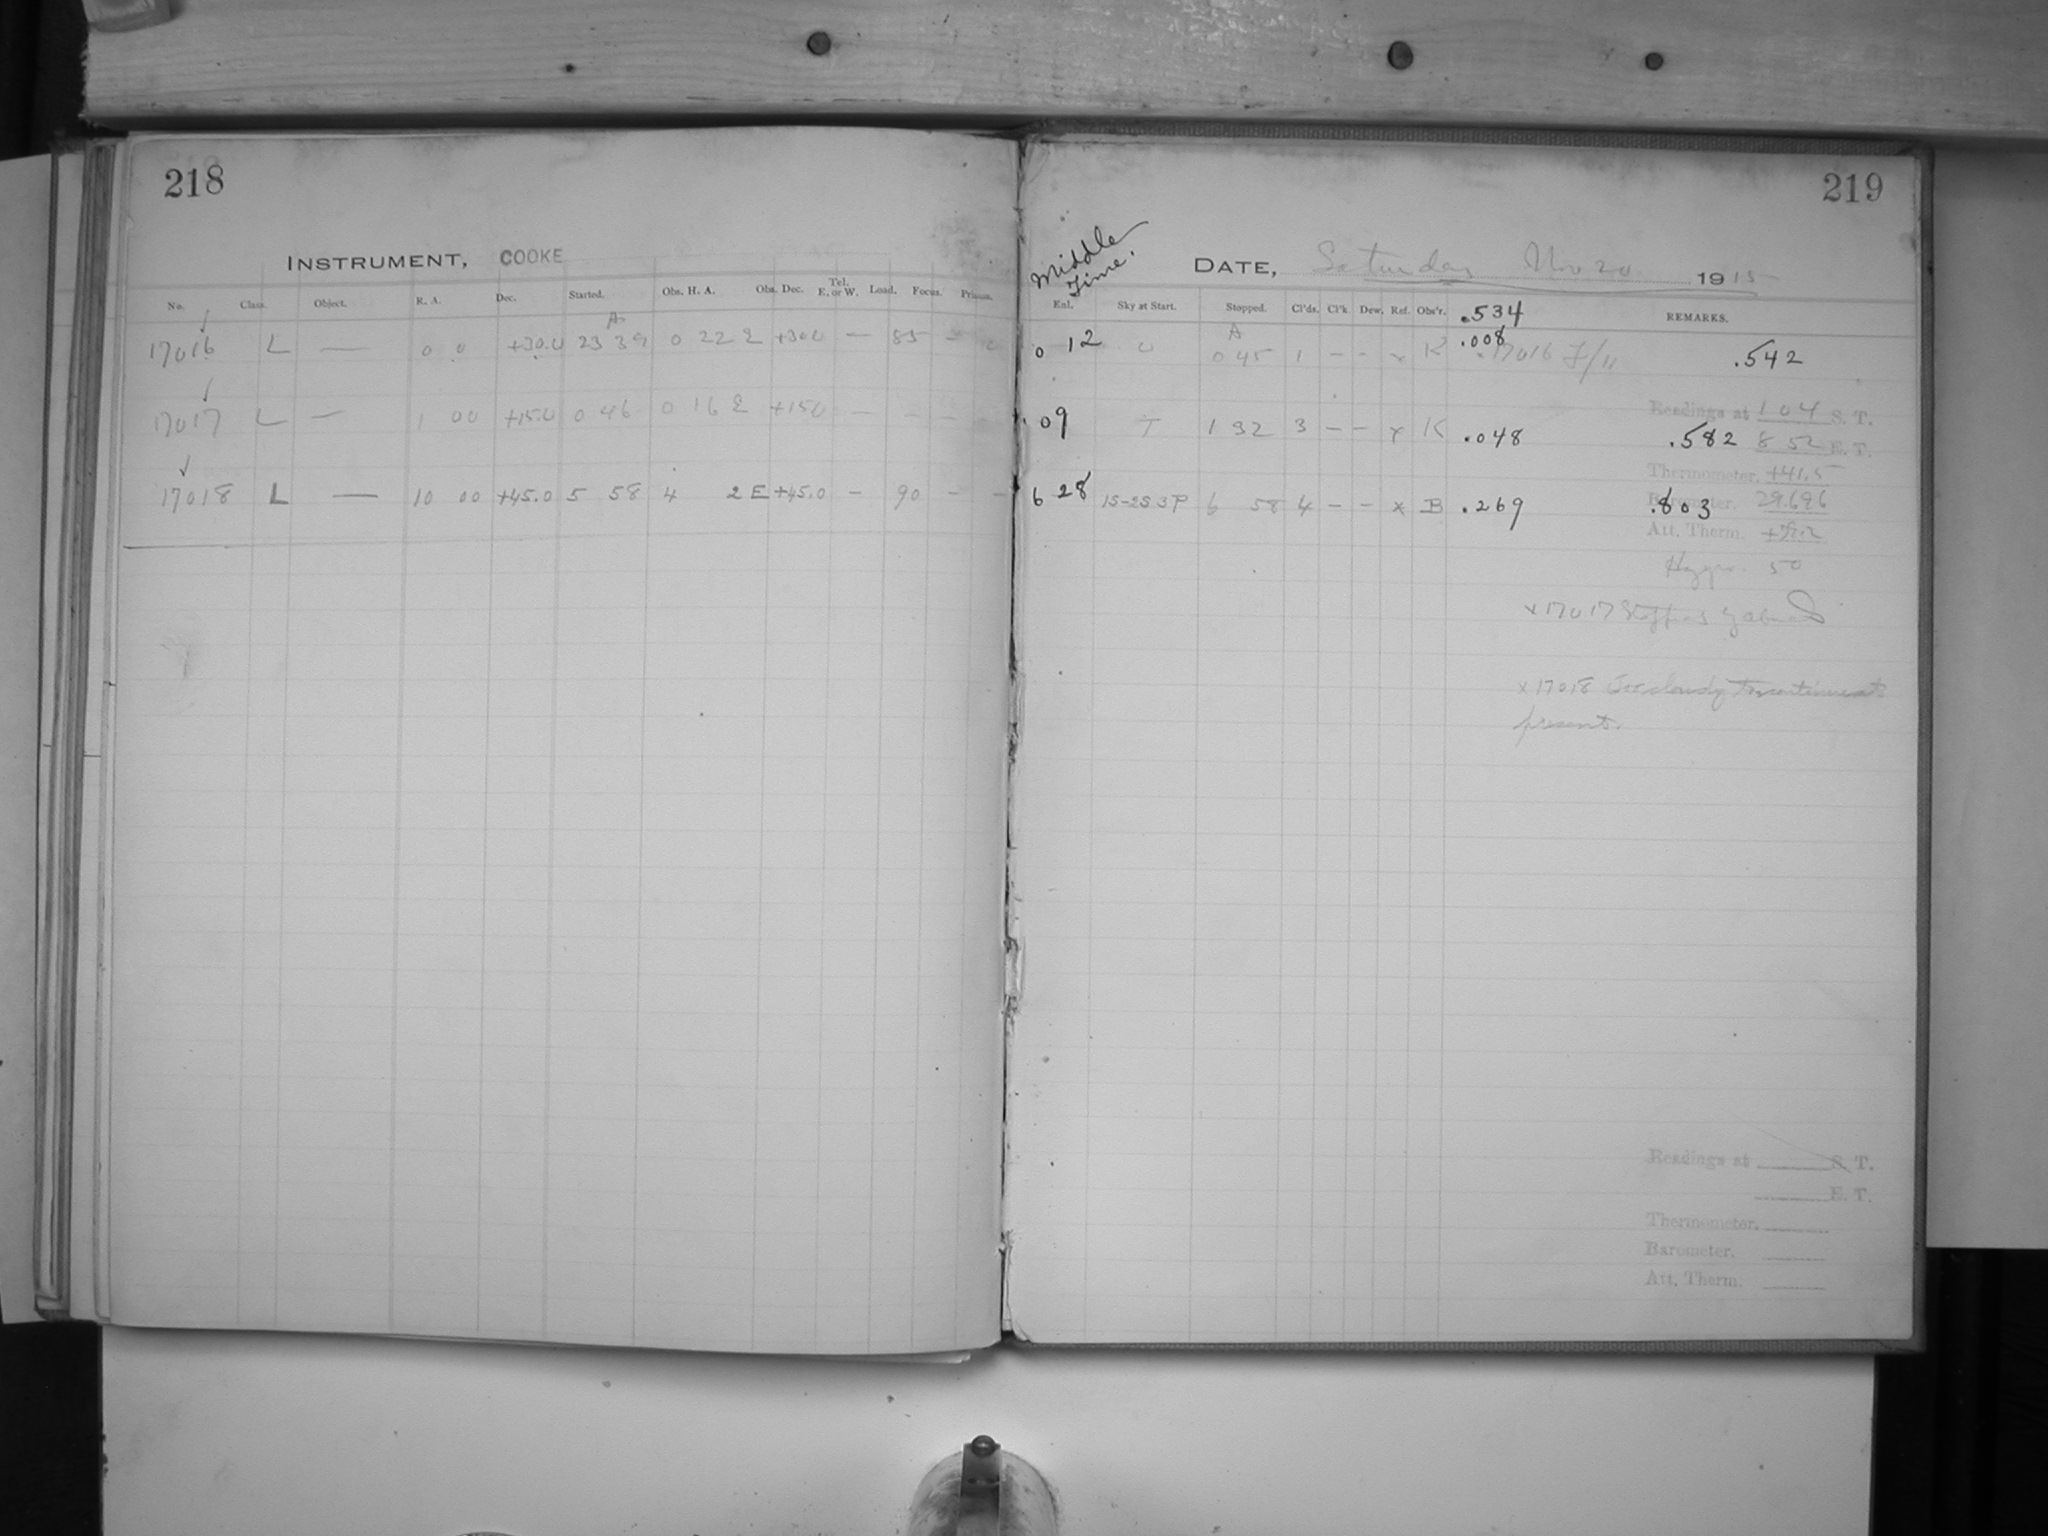 218
INSTRUMENT, COOKE
No. Class. Object. R. A. Dec. Started. Obs. H. A. Obs. Dec. Tel. E. or W. Load. Focus. Prisms.
17016 L — 0 0 +30.0 23 39 A 0 22 E +30.0 — 85 -
17017 L — 1 00 +15.0 0 46 0 16 E +15.0 — - -
17018 L — 10 00 +45.0 5 58 4 2 E +45.0 - 90 - -
219
Middle Time.
DATE, Saturday Nov 20 1915
Enl. Sky at Start. Stopped. Cl'ds. Cl'k. Dew. Ref. Obs'r. .534 REMARKS.
0 12 0 A 0 45 1 - - x K .008 .17016 F/11 .542
Readings at 1 04 S. T.
1 09 T 1 32 3 - - x K .048 .582 8 52 E. T.
Thermometer. +41.5
6 28 1S-2S 3P 6 58 4 - - x B .269 .803 Barometer. 29.696
Att. Therm.
Hygro. 50
x 17017 Stopped by clouds
x 17018 Too cloudy to continue at
present.
Readings at S. T.
E. T.
Thermometer.
Barometer.
Att. Therm.